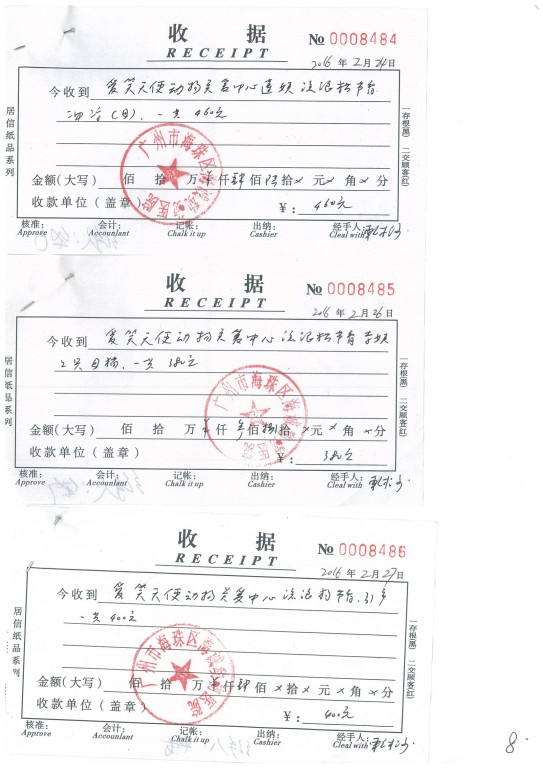 收 据
RECEIPT
No 0008484
2016 年 2 月 24 日
今收到 爱笑天使动物关爱中心
一共 460元
金额(大写) 佰 拾 万 仟 肆 佰 陆 拾 × 元 × 角 × 分
收款单位(盖章) ¥: 460元
核准: 会计: 记帐: 出纳: 经手人:
Approve Accountant Chalk it up Cashier Cleal with
居信纸品系列
一存根(黑) 二交顾客(红)
广州市海珠区
收 据
RECEIPT
No 0008485
2016 年 2 月 26 日
今收到 爱笑天使动物关爱中心
2只母猫,一共 380元
金额(大写) 佰 拾 万 仟 叁 佰 捌 拾 × 元 × 角 × 分
收款单位(盖章) ¥: 380元
核准: 会计: 记帐: 出纳: 经手人:
Approve Accountant Chalk it up Cashier Cleal with
居信纸品系列
一存根(黑) 二交顾客(红)
广州市海珠区
收 据
RECEIPT
No 0008486
2016 年 2 月 27 日
今收到 爱笑天使动物关爱中心
一共 400元
金额(大写) 佰 拾 万 仟 肆 佰 × 拾 × 元 × 角 × 分
收款单位(盖章) ¥: 400元
核准: 会计: 记帐: 出纳: 经手人:
Approve Accountant Chalk it up Cashier Cleal with
居信纸品系列
一存根(黑) 二交顾客(红)
广州市海珠区
8.